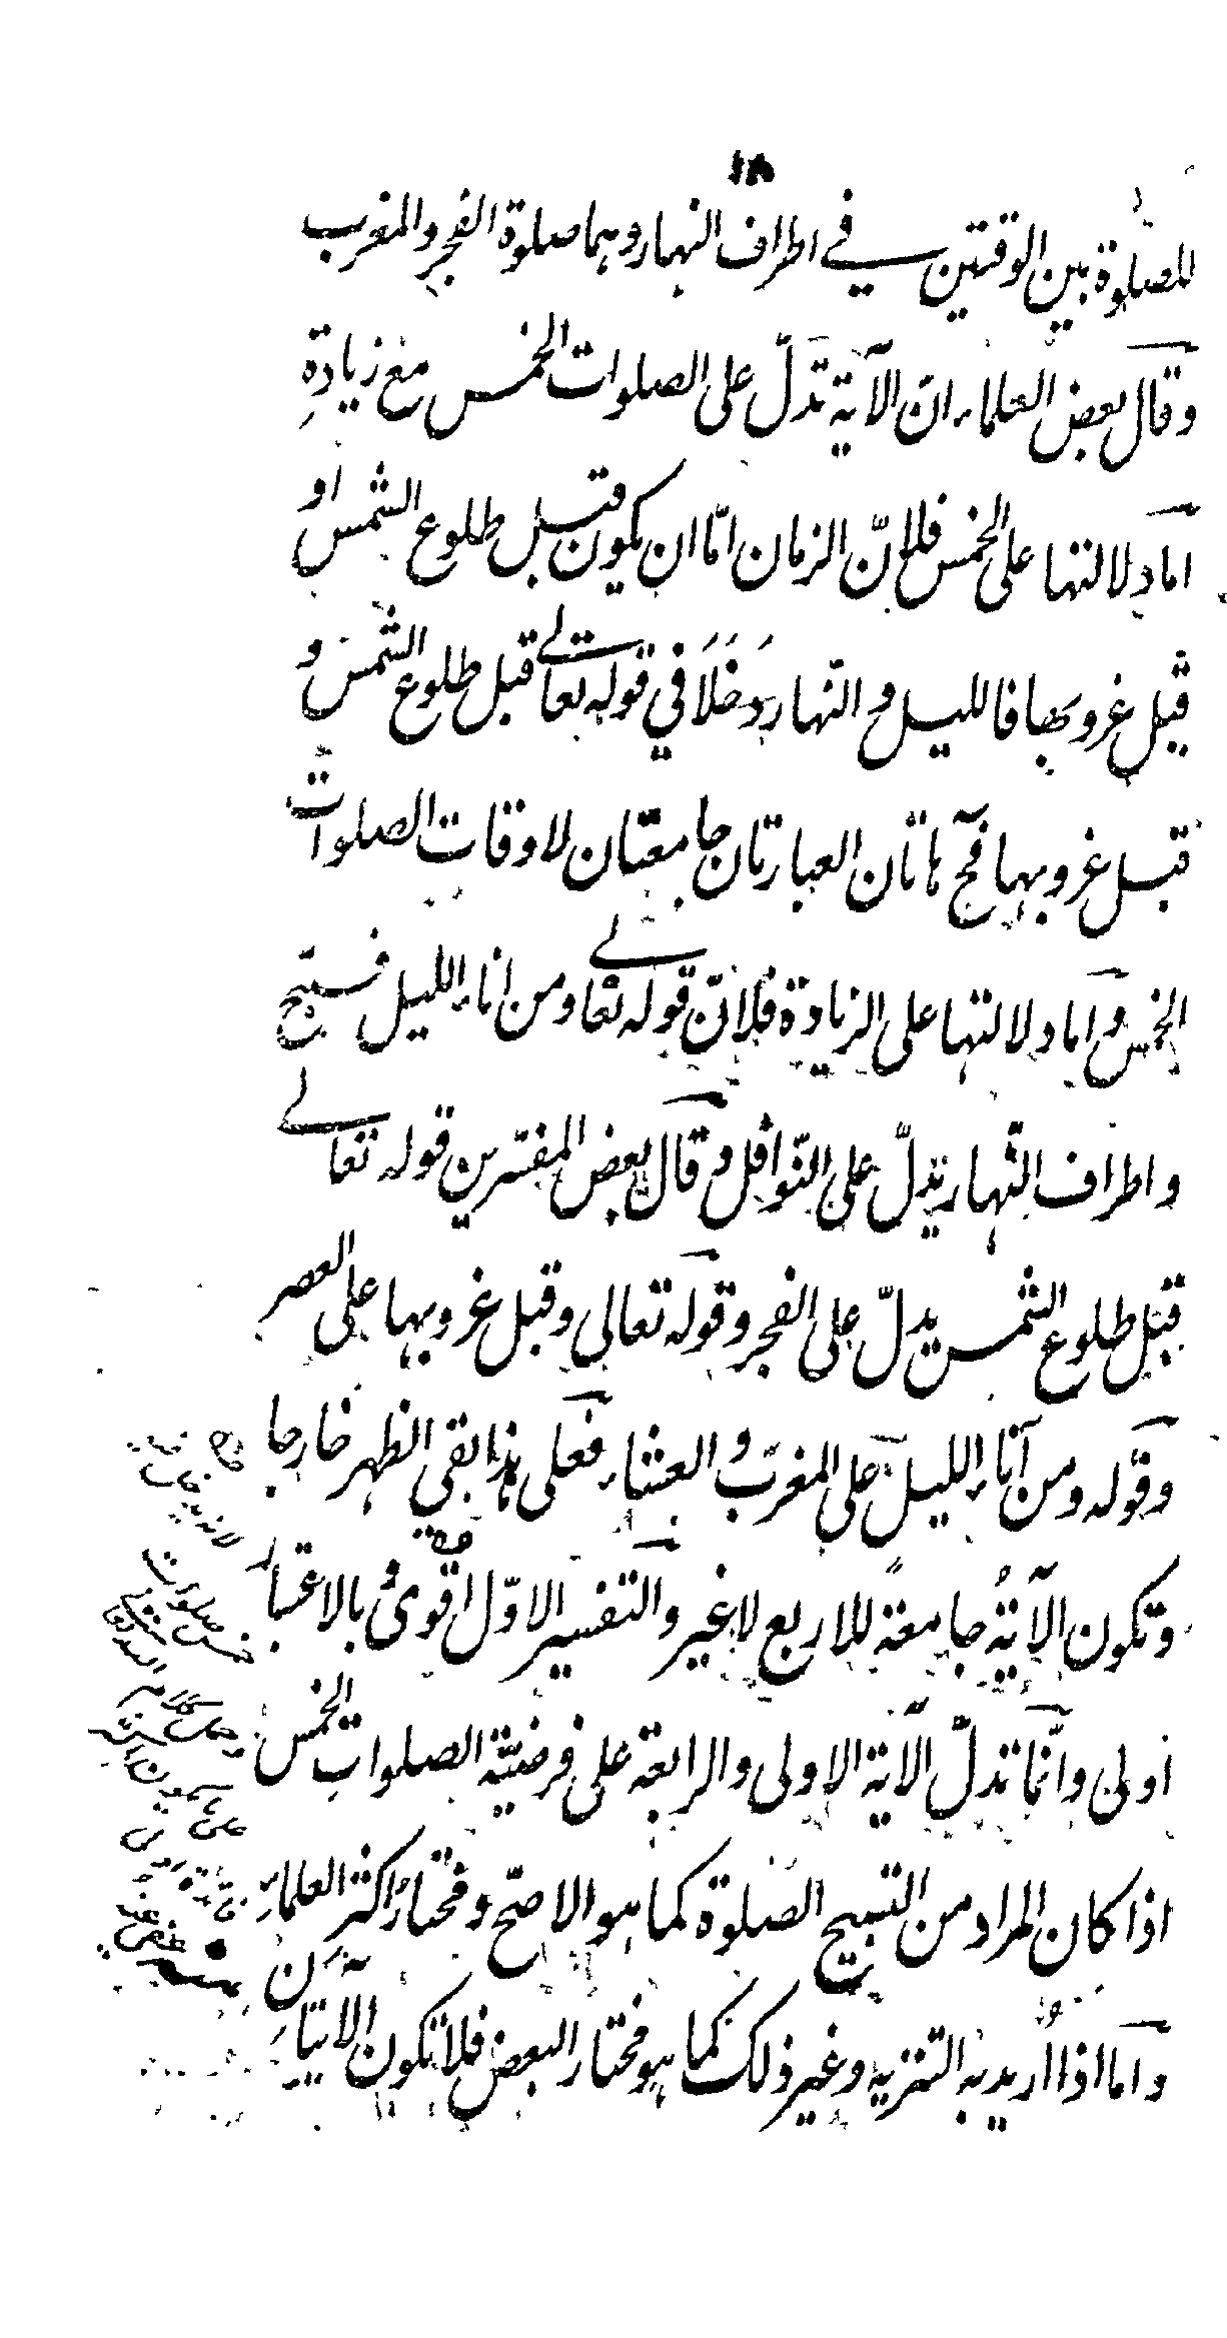 ١٨
للصلوة بين الوقتين في اطراف النهار وهما صلوة الفجر والمغرب
وقال بعض العلماء ان الآية تدلّ على الصلوات الخمس مع زيادةٍ
اما دلالتها على الخمس فلانّ الزمان امّا ان يكون قبل طلوع الشمس او
قبل غروبها فالليل و النّهار دَخَلَا في قوله تعالے قبل طلوع الشمس و
قبل غروبها فح هاتان العبارتان جامعتان لاوقات الصلوات
الخمس و اما دلالتها على الزيادة فلانّ قوله تعالے ومن اناء الليل فسبّح
واطراف النّهار يدلّ على النّوافل و قال بعض المفسّرين قوله تعالے
قبل طلوع الشمس يدلّ على الفجر وقوله تعالى وقبل غروبها على العصر
وقوله ومن آناء الليل على المغرب و العشاء فعلى هذا بقي الظهر خارجا
وتكون الآيةُ جامعةً للاربع لا غير والتفسير الاوّل اقوىٰ و بالاعتبار
اولى وانّما تدلّ الآية الاولى والرابعة على فرضيّة الصلوات الخمس
اذا كان المراد من التسبيح الصّلوة كما هو الاصحّ ومختار اكثر العلماءِ
واما اذا اُريد به التنزيه وغير ذلك كما هو مختار البعض فلا تكون الآيتان
لانه
خمس صلوات